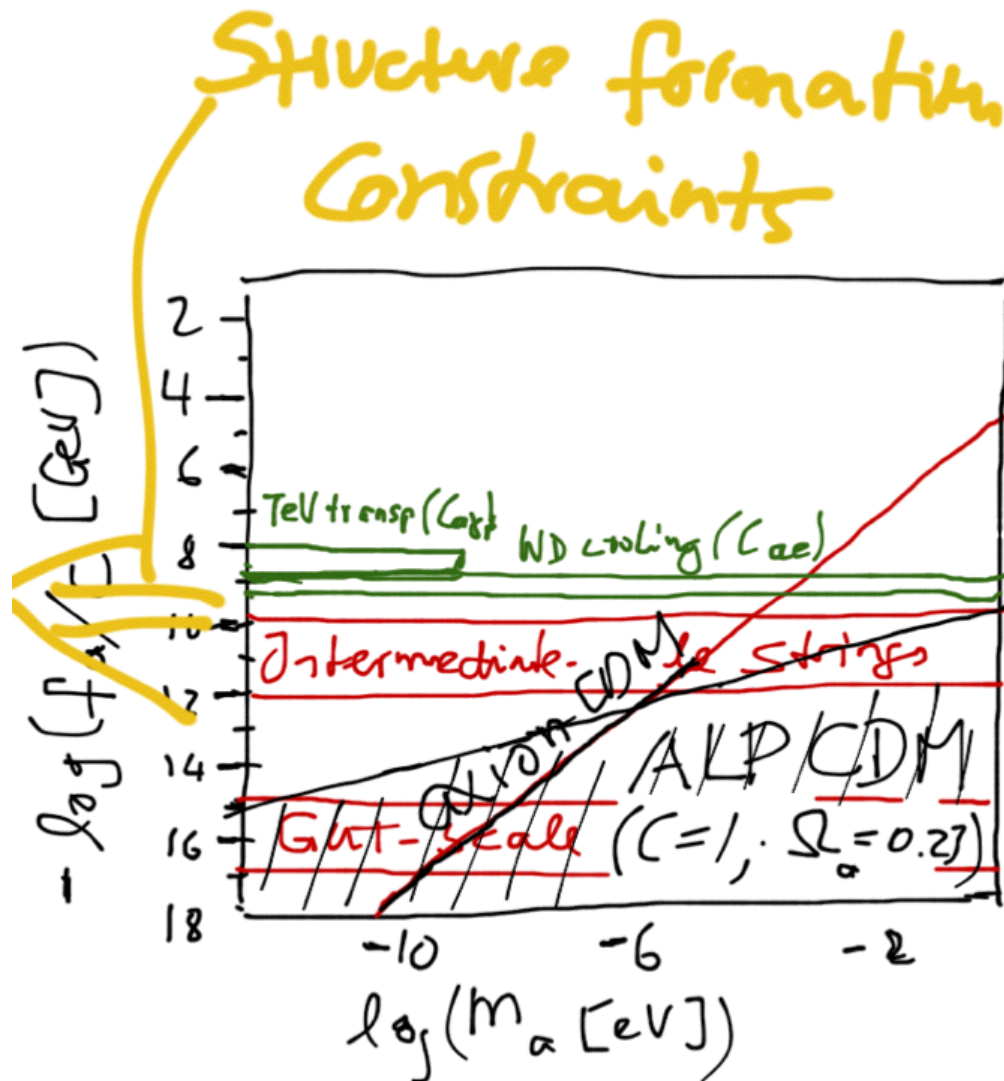 Structure formation
Constraints
- log (f /C [GeV])
2
4
6
8
10
12
14
16
18
TeV transp (Caγ)
WD cooling (Cae)
Intermediate- le strings
axion CDM
ALP CDM
GUT-scale (C=1, Ωa=0.23)
-10 -6 -2
log (ma [eV])